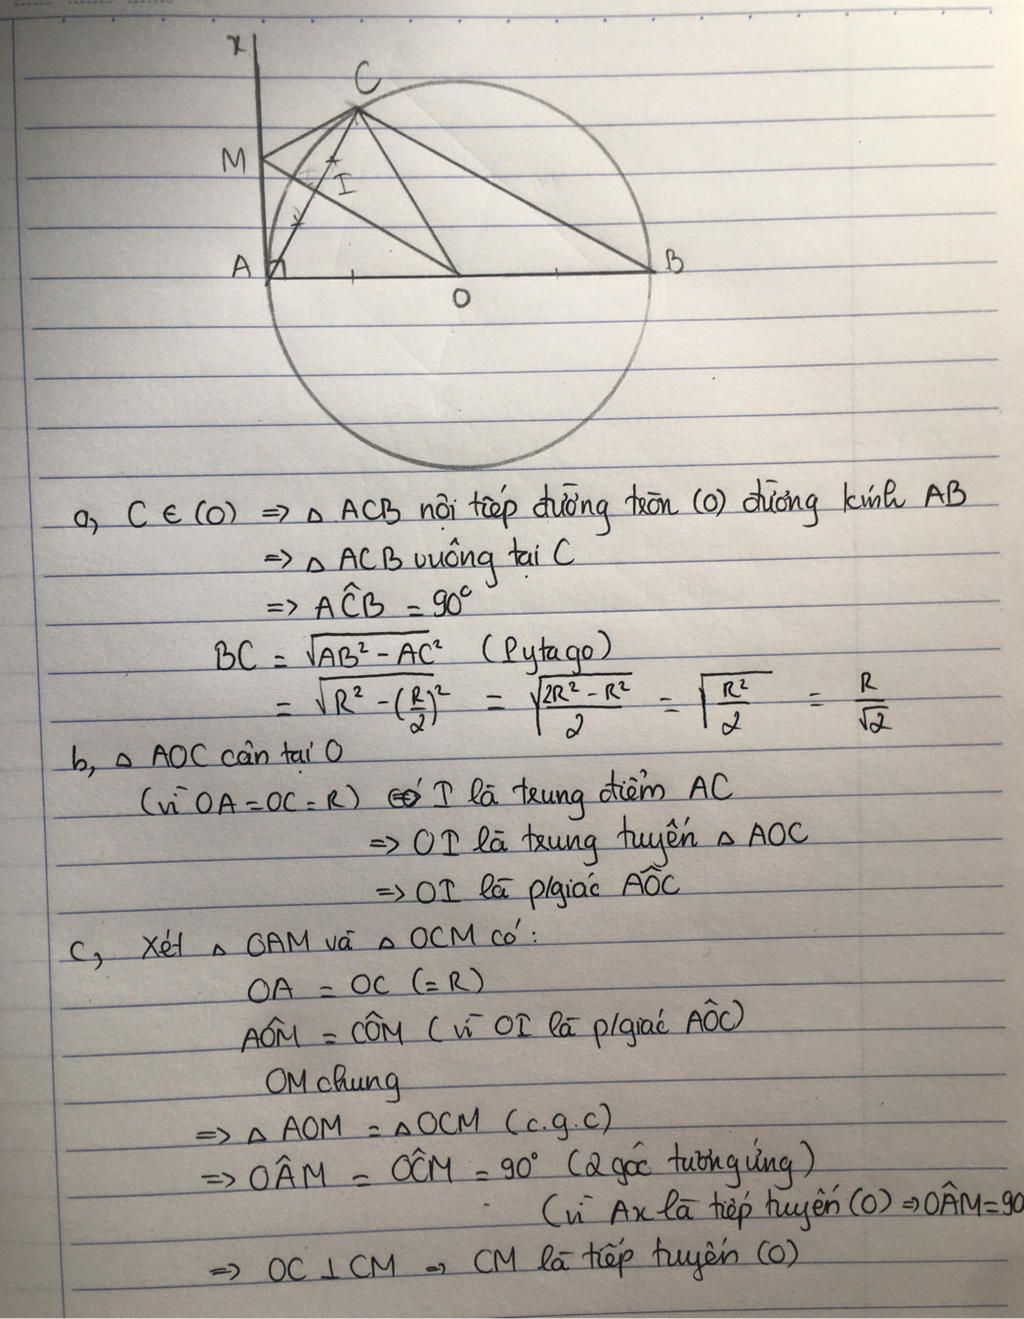 x
C
M
I
A
B
O
a, C ∈ (O) => △ ACB nội tiếp đường tròn (O) đường kính AB
=> △ ACB vuông tại C
=> AĈB = 90°
BC = √(AB² - AC²) (Pytago)
= √(R² - (R/2)²) = √((2R² - R²)/2) = √(R²/2) = R/√2
b, △ AOC cân tại O
(vì OA = OC = R) có I là trung điểm AC
=> OI là trung tuyến △ AOC
=> OI là p/giác AÔC
c, Xét △ OAM và △ OCM có:
OA = OC (= R)
AÔM = CÔM (vì OI là p/giác AÔC)
OM chung
=> △ AOM = △ OCM (c.g.c)
=> OÂM = OĈM = 90° (2 góc tương ứng)
(vì Ax là tiếp tuyến (O) => OÂM = 90
=> OC ⊥ CM => CM là tiếp tuyến (O)